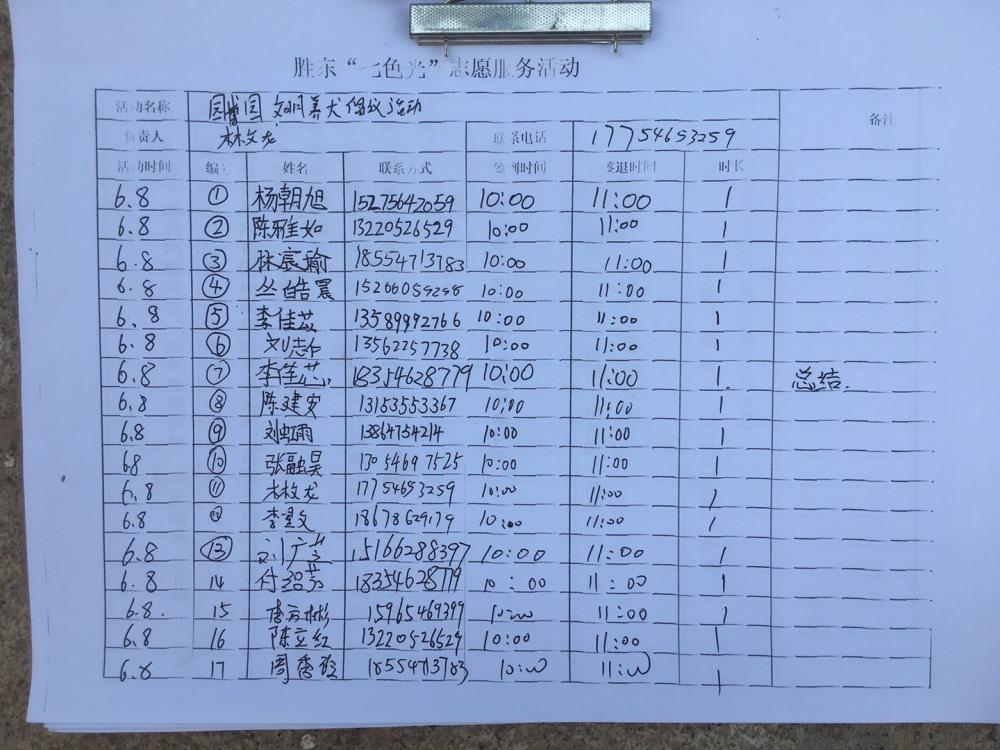 胜东“七色光”志愿服务活动
活动名称 园博园 文明养犬倡议活动 备注
负责人 林文龙 联系电话 17754693259
活动时间 编号 姓名 联系方式 签到时间 签退时间 时长
6.8 ① 杨朝旭 15275642059 10:00 11:00 1
6.8 ② 陈雅如 13220526529 10:00 11:00 1
6.8 ③ 林宸瑜 18554713783 10:00 11:00 1
6.8 ④ 丛皓晨 10:00 11:00 1
6.8 ⑤ 李佳 13589992766 10:00 11:00 1
6.8 ⑥ 刘志 13562257738 10:00 11:00 1
6.8 ⑦ 李佳芯 18354628779 10:00 11:00 1 总结.
6.8 ⑧ 陈建安 13153553367 10:00 11:00 1
6.8 ⑨ 刘虹雨 13864754214 10:00 11:00 1
6.8 ⑩ 张融昊 13054697525 10:00 11:00 1
6.8 ⑪ 林文龙 17754693259 10:00 11:00 1
6.8 ⑫ 李 文 18678629179 10:00 11:00 1
6.8 ⑬ 刘广 15166288397 10:00 11:00 1
6.8 14 付 18354628779 10:00 11:00 1
6.8. 15 15965469399 10:00 11:00 1
6.8 16 陈立红 13220526529 10:00 11:00 1
6.8 17 周秀 18554713783 10:00 11:00 1